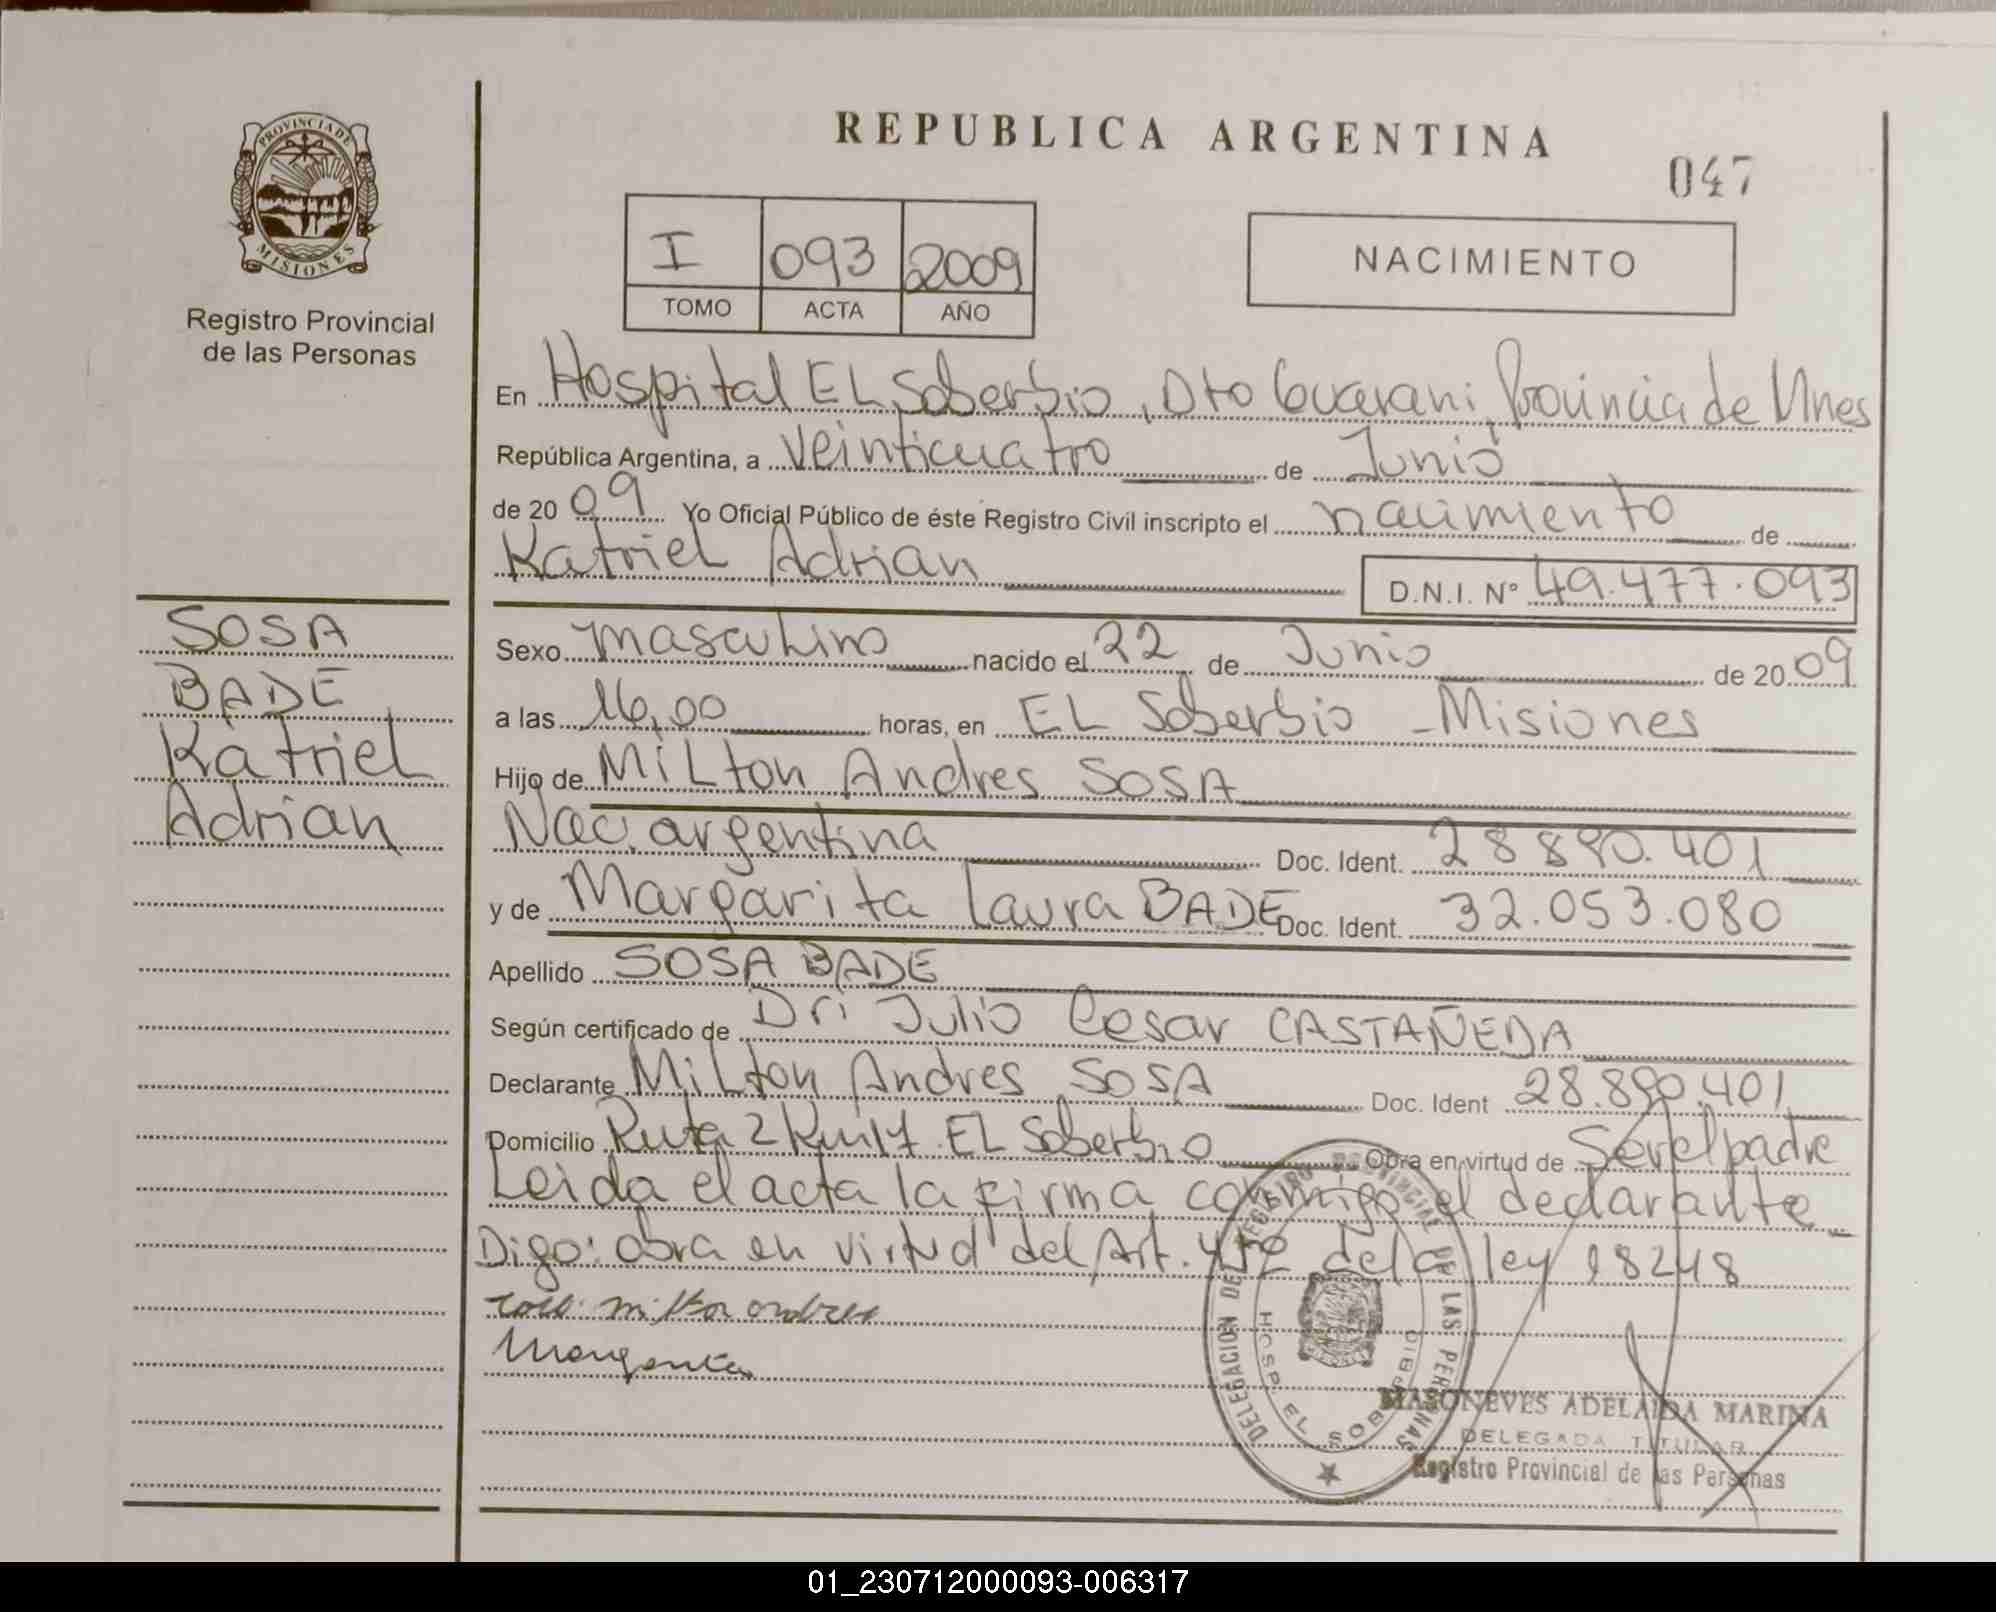 REPUBLICA ARGENTINA
047
PROVINCIA DE
MISIONES
Registro Provincial
de las Personas
I 093 2009
TOMO ACTA AÑO
NACIMIENTO
En Hospital EL Soberbio, Dto Guarani, Provincia de Mnes
República Argentina, a veinticuatro de Junio
de 20 09 Yo Oficial Público de éste Registro Civil inscripto el nacimiento de
Katriel Adrian D.N.I. Nº 49.477.093
SOSA
BADE
Katriel
Adrian
Sexo masculino nacido el 22 de Junio de 20 09
a las 16,00 horas, en EL Soberbio - Misiones
Hijo de Milton Andres SOSA
Nac. argentina Doc. Ident. 28 890.401
y de Margarita Laura BADE Doc. Ident. 32.053.080
Apellido SOSA BADE
Según certificado de Dr: Julio Cesar CASTAÑEDA
Declarante Milton Andres SOSA Doc. Ident 28.890.401
Domicilio Ruta 2 Km 17 EL Soberbio Obra en virtud de Ser el padre
Leida el acta la firma conmigo el declarante
Digo: obra en virtud del Art. de la ley 18248
milton andres
Margarita
DELEGACION DEL REGISTRO PROVINCIAL DE LAS PERSONAS
HOSP. EL SOBERBIO
MASONEVES ADELAIDA MARINA
DELEGADA TITULAR
Registro Provincial de las Personas
01_230712000093-006317